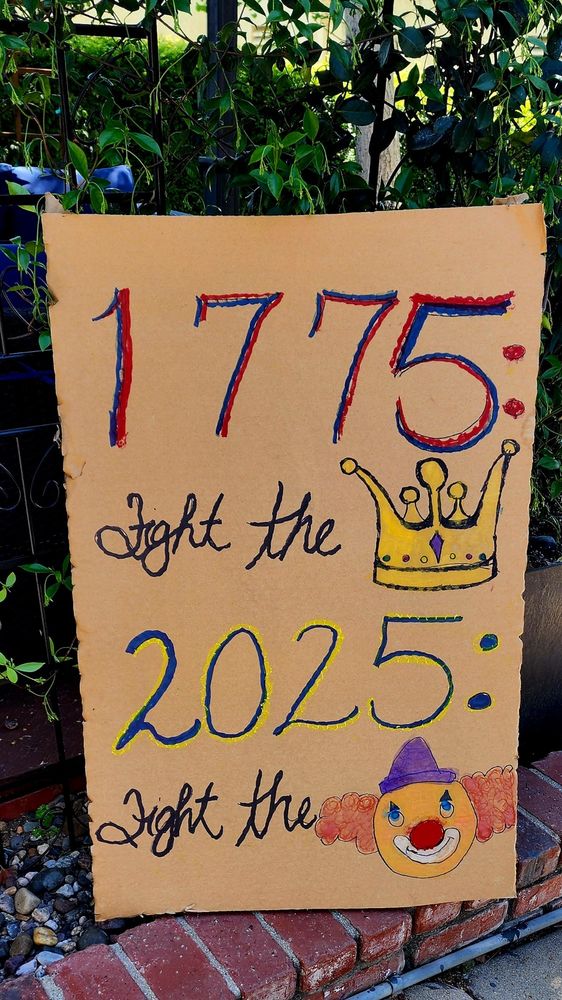 1775:
Fight the
2025:
Fight the